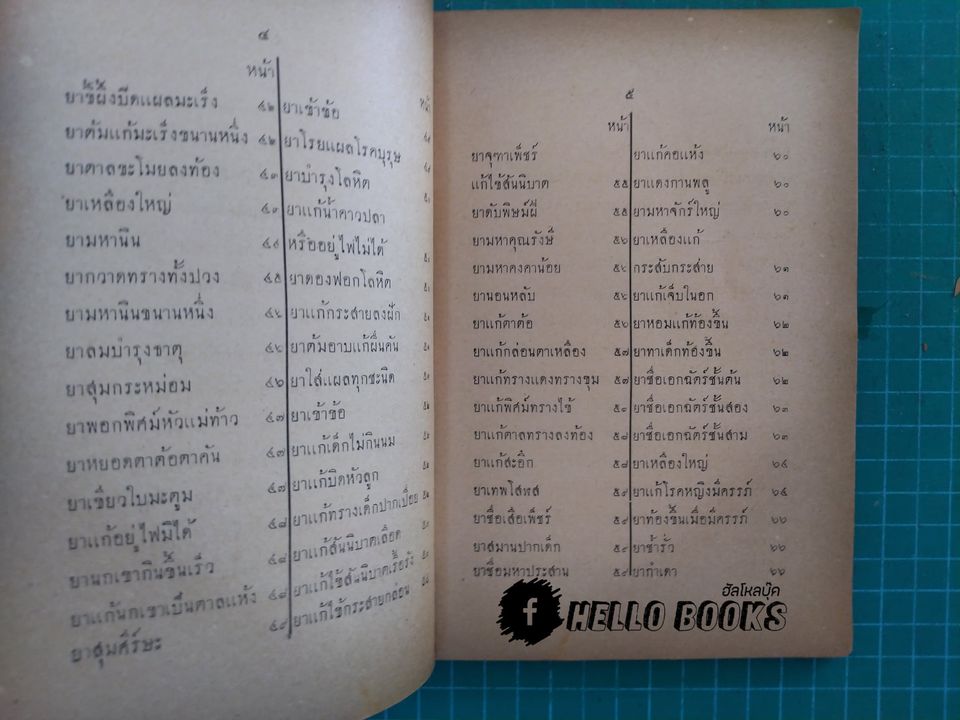 ๔
หน้า
ยาขี้ผึ้งบีดแผลมะเร็ง ๔๒
ยาต้มแก้มะเร็งขนานหนึ่ง ๔๒
ยาตาลขะโมยลงท้อง ๔๓
ยาเหลืองใหญ่ ๔๓
ยามหานิน ๔๔
ยากวาดทรางทั้งปวง ๔๕
ยามหานินขนานหนึ่ง ๔๖
ยาลมบำรุงธาตุ ๔๖
ยาสุมกระหม่อม ๔๖
ยาพอกพิศม์หัวแม่ท้าว ๔๗
ยาหยอดตาต้อตาคัน ๔๗
ยาเขียวใบมะตูม ๔๗
ยาแก้อยู่ไฟมิได้ ๔๘
ยานกเขากินขึ้นเร็ว ๔๘
ยาแก้นกเขาเป็นตาลแห้ง ๔๘
ยาสุมศีร์ษะ ๔๙
หน้า
ยาเข้าข้อ
ยาโรยแผลโรคบุรุษ
ยาบำรุงโลหิต
ยาแก้น้ำคาวปลา
หรืออยู่ไฟไม่ได้
ยาดองฟอกโลหิต
ยาแก้กระสายลงฝัก
ยาต้มอาบแก้ผื่นคัน
ยาใส่แผลทุกชะนิด
ยาเข้าข้อ
ยาแก้เด็กไม่กินนม
ยาแก้บิดหัวลูก
ยาแก้ทรางเด็กปากเปื่อย
ยาแก้สันนิบาตเลือด
ยาแก้ไข้สันนิบาตเรื้อรัง
ยาแก้ไข้กระสายกล่อน
๕
หน้า
ยาจุฑาเพ็ชร์
แก้ไข้สันนิบาต ๕๕
ยาดับพิษม์ฝี ๕๕
ยามหาคุณรังษี ๕๖
ยามหาคงคาน้อย ๕๖
ยานอนหลับ ๕๖
ยาแก้ตาต้อ ๕๖
ยาแก้กล่อนตาเหลือง ๕๗
ยาแก้ทรางแดงทรางขุม ๕๗
ยาแก้พิศม์ทรางไข้
ยาแก้ตาลทรางลงท้อง ๕๘
ยาแก้สะอึก ๕๘
ยาเทพโสฬส ๕๙
ยาชื่อเสือเพ็ชร์ ๕๙
ยาสมานปากเด็ก ๕๙
ยาชื่อมหาประสาน ๕๙
หน้า
ยาแก้คอแห้ง ๖๐
ยาแดงกานพลู ๖๐
ยามหาจักร์ใหญ่ ๖๐
ยาเหลืองแก้
กระสับกระส่าย ๖๑
ยาแก้เจ็บในอก ๖๑
ยาหอมแก้ท้องขึ้น ๖๒
ยาทาเด็กท้องขึ้น ๖๒
ยาชื่อเอกฉัตร์ชั้นต้น ๖๒
ยาชื่อเอกฉัตร์ชั้นสอง ๖๓
ยาชื่อเอกฉัตร์ชั้นสาม ๖๓
ยาเหลืองใหญ่ ๖๔
ยาแก้โรคหญิงมีครรภ์ ๖๕
ยาท้องขึ้นเมื่อมีครรภ์ ๖๖
ยาช้ำรั่ว ๖๖
ยากำเดา ๖๖
ฮัลโหลบุ๊ค
f HELLO BOOKS